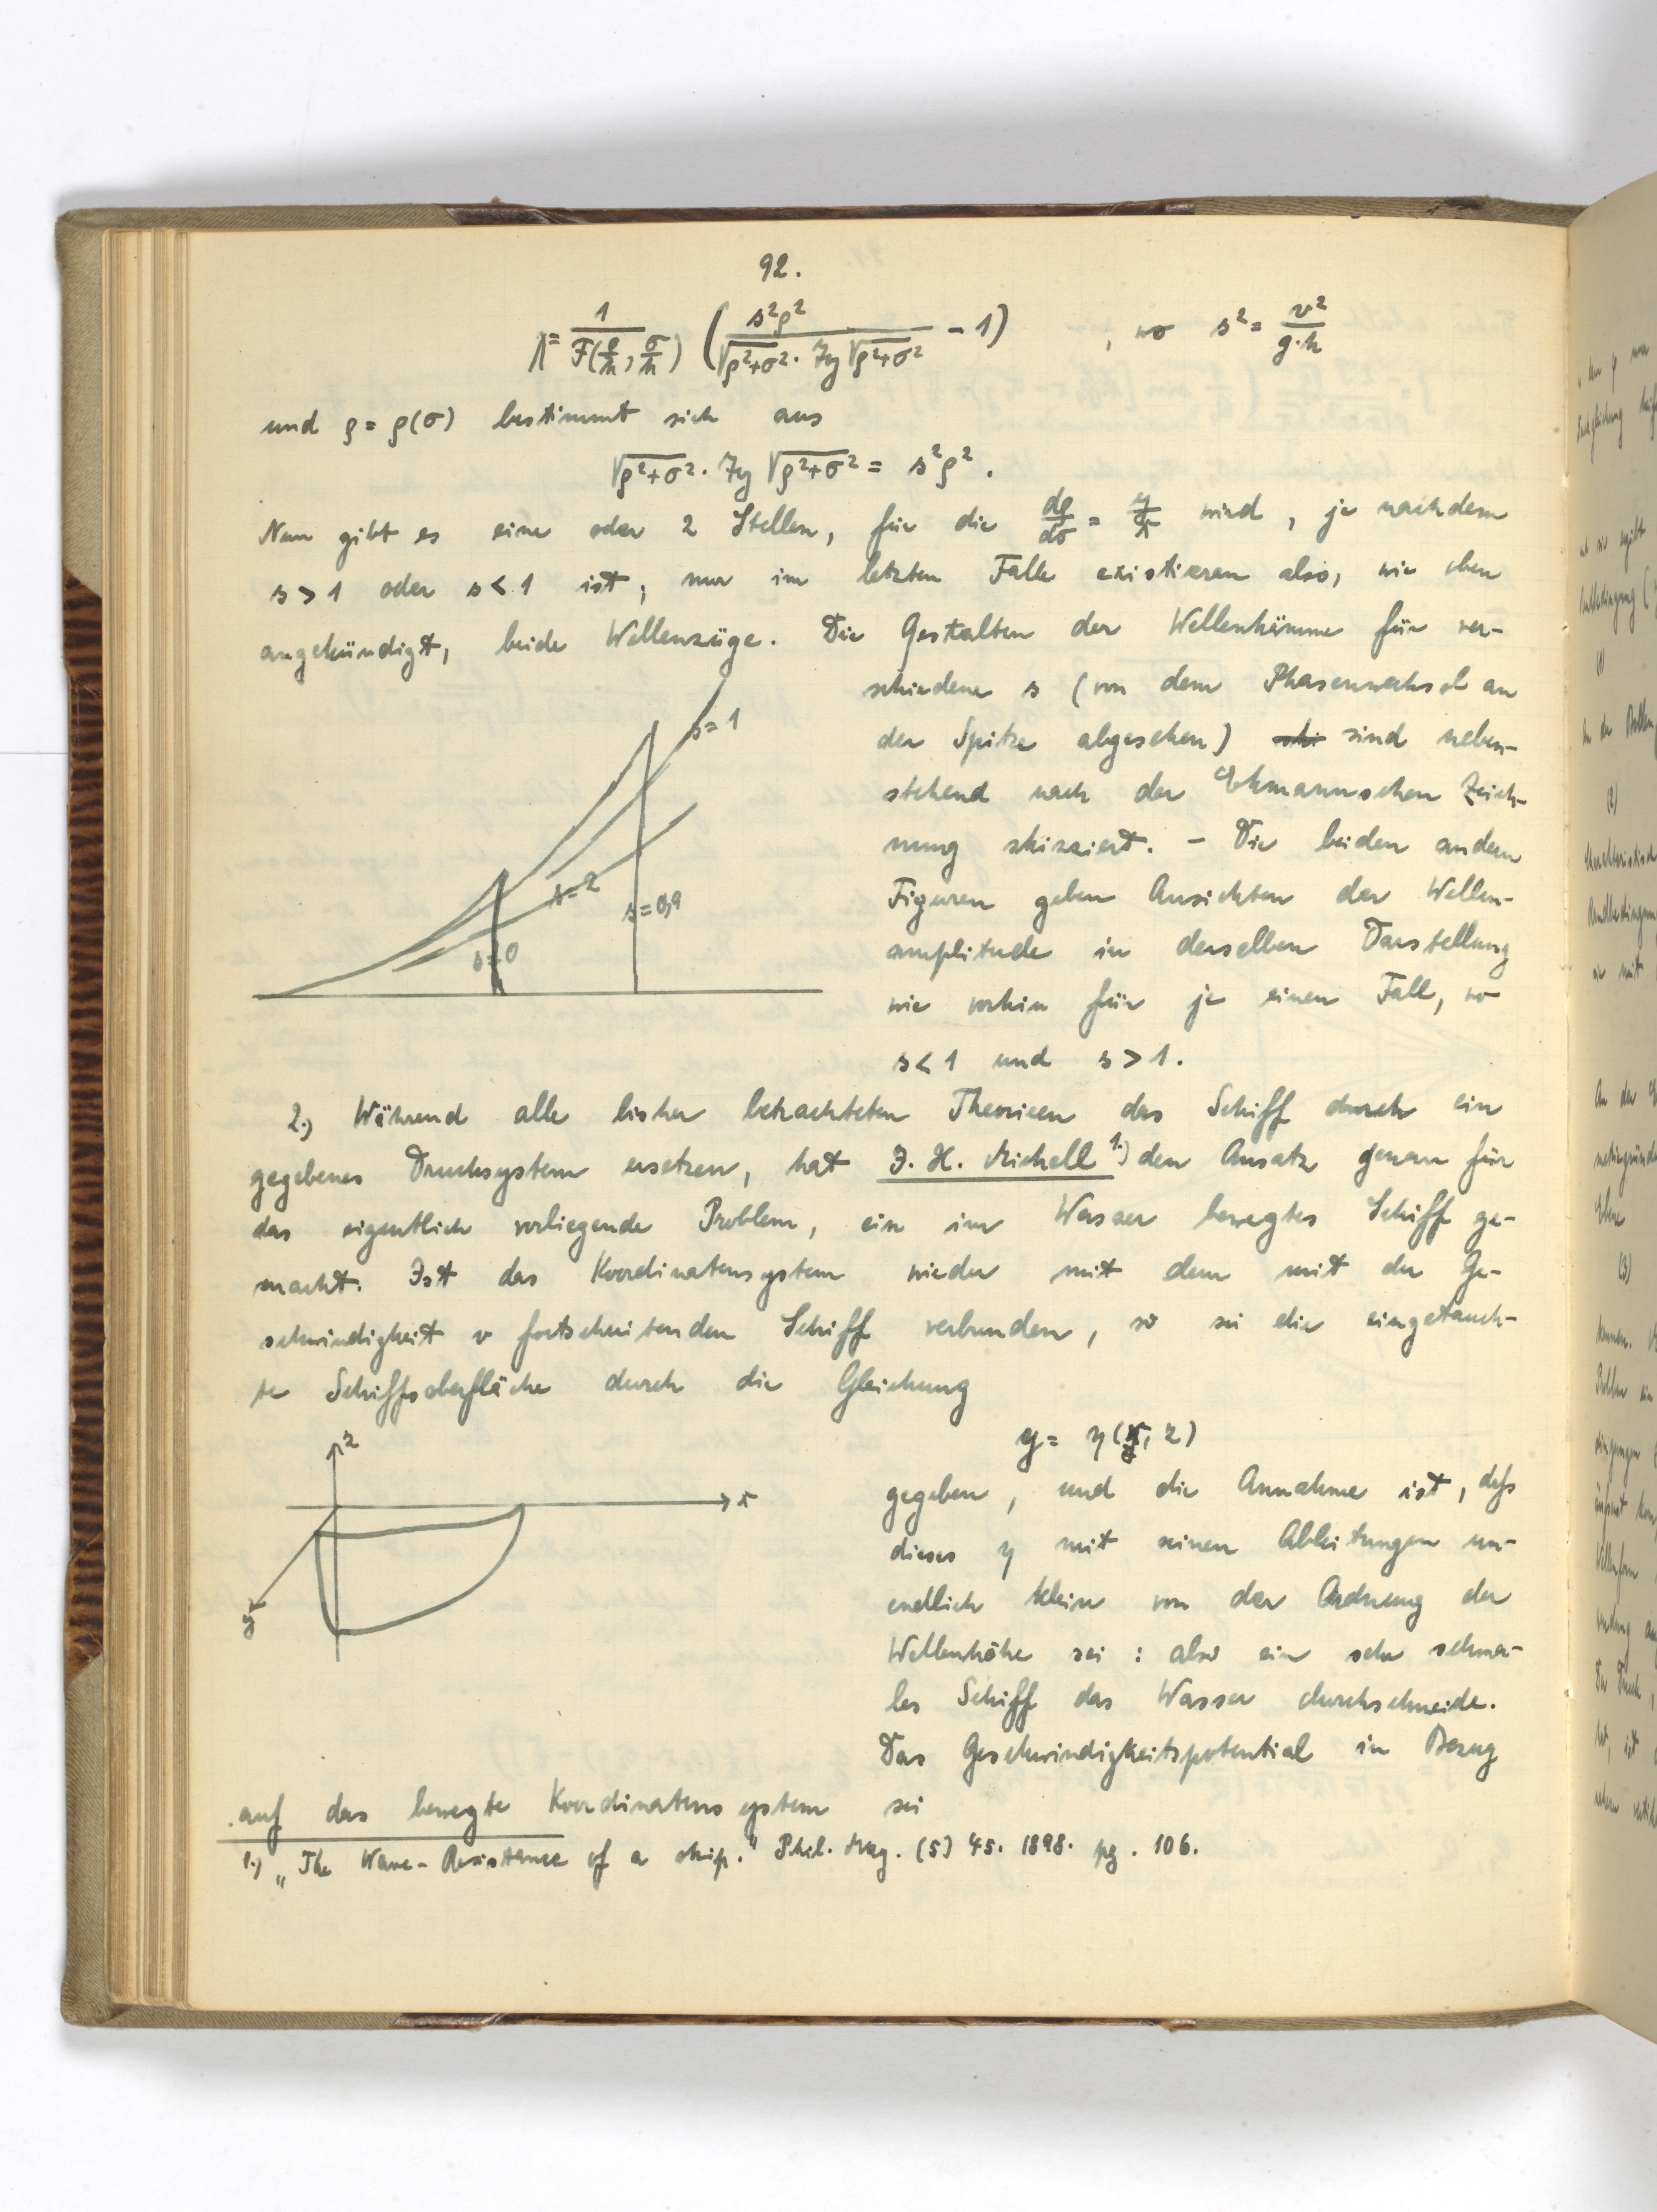 92.
Λ = 1/F(ρ/h, σ/h) (s²ρ²/(√ρ²+σ² · Tg √ρ²+σ²) - 1) , wo s² = v²/g·h
und ρ = ρ(σ) bestimmt sich aus
√ρ²+σ² · Tg √ρ²+σ² = s²ρ².
Nun gibt es eine oder 2 Stellen, für die dρ/dσ = y/x wird, je nachdem
s > 1 oder s < 1 ist; nur im letzten Falle existieren also, wie oben
angekündigt, beide Wellenzüge. Die Gestalten der Wellenkämme für ver-
schiedene s (von dem Phasenwechsel an
der Spitze abgesehen) sind neben-
stehend nach der Ekmannschen Zeich-
nung skizziert. - Die beiden andern
Figuren geben Ansichten der Wellen-
amplitude in derselben Darstellung
wie vorhin für je einen Fall, wo
s < 1 und s > 1.
s=1
s=2
s=0,9
s=0
2.) Während alle bisher betrachteten Theorieen das Schiff durch ein
gegebenes Drucksystem ersetzen, hat J. H. Michell 1.) den Ansatz genau für
das eigentlich vorliegende Problem, ein im Wasser bewegtes Schiff ge-
macht. Ist das Koordinatensystem wieder mit dem mit der Ge-
schwindigkeit v fortschreitenden Schiff verbunden, so sei die eingetauch-
te Schiffsoberfläche durch die Gleichung
y = η(x, z)
gegeben, und die Annahme ist, daß
dieses η mit seinen Ableitungen un-
endlich klein von der Ordnung der
Wellenhöhe sei : also ein sehr schma-
les Schiff das Wasser durchschneide.
Das Geschwindigkeitspotential in Bezug
z
x
y
auf das bewegte Koordinatensystem sei
1.) „The Wave-Resistance of a ship." Phil. Mag. (5) 45. 1898. pg. 106.